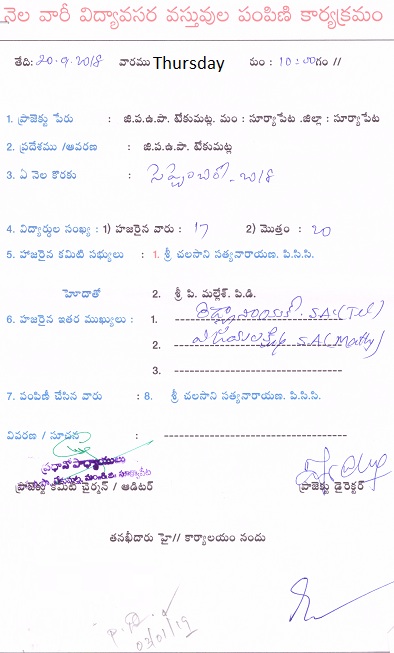 నెల వారీ విద్యావసర వస్తువుల పంపిణి కార్యక్రమం
తేది: 20.9.2018 వారము Thursday మం : 10:00గం //
1. ప్రాజెక్టు పేరు : జి.ప.ఉ.పా. టేకుమట్ల. మం : సూర్యాపేట .జిల్లా : సూర్యాపేట
2. ప్రదేశము /ఆవరణ : జి.ప.ఉ.పా. టేకుమట్ల
3. ఏ నెల కొరకు : సెప్టెంబర్ - 2018
4. విద్యార్థుల సంఖ్య : 1) హాజరైన వారు : 17 2) మొత్తం : 20
5. హాజరైన కమిటి సభ్యులు : 1. శ్రీ చలసాని సత్యనారాయణ. పి.సి.సి.
హెూదాతో 2. శ్రీ పి. మల్లేశ్. పి.డి.
6. హాజరైన ఇతర ముఖ్యులు : 1. SA(Tel)
2. SA(Maths)
3.
7. పంపిణీ చేసిన వారు : 8. శ్రీ చలసాని సత్యనారాయణ. పి.సి.సి.
వివరణ / సూచన :
ప్రధానోపాధ్యాయులు
ప్రాజెక్టు కమిటీ చైర్మన్ / ఆడిటర్ ప్రాజెక్టు డైరెక్టర్
తనఖీదారు హై// కార్యాలయం నందు
03/01/19